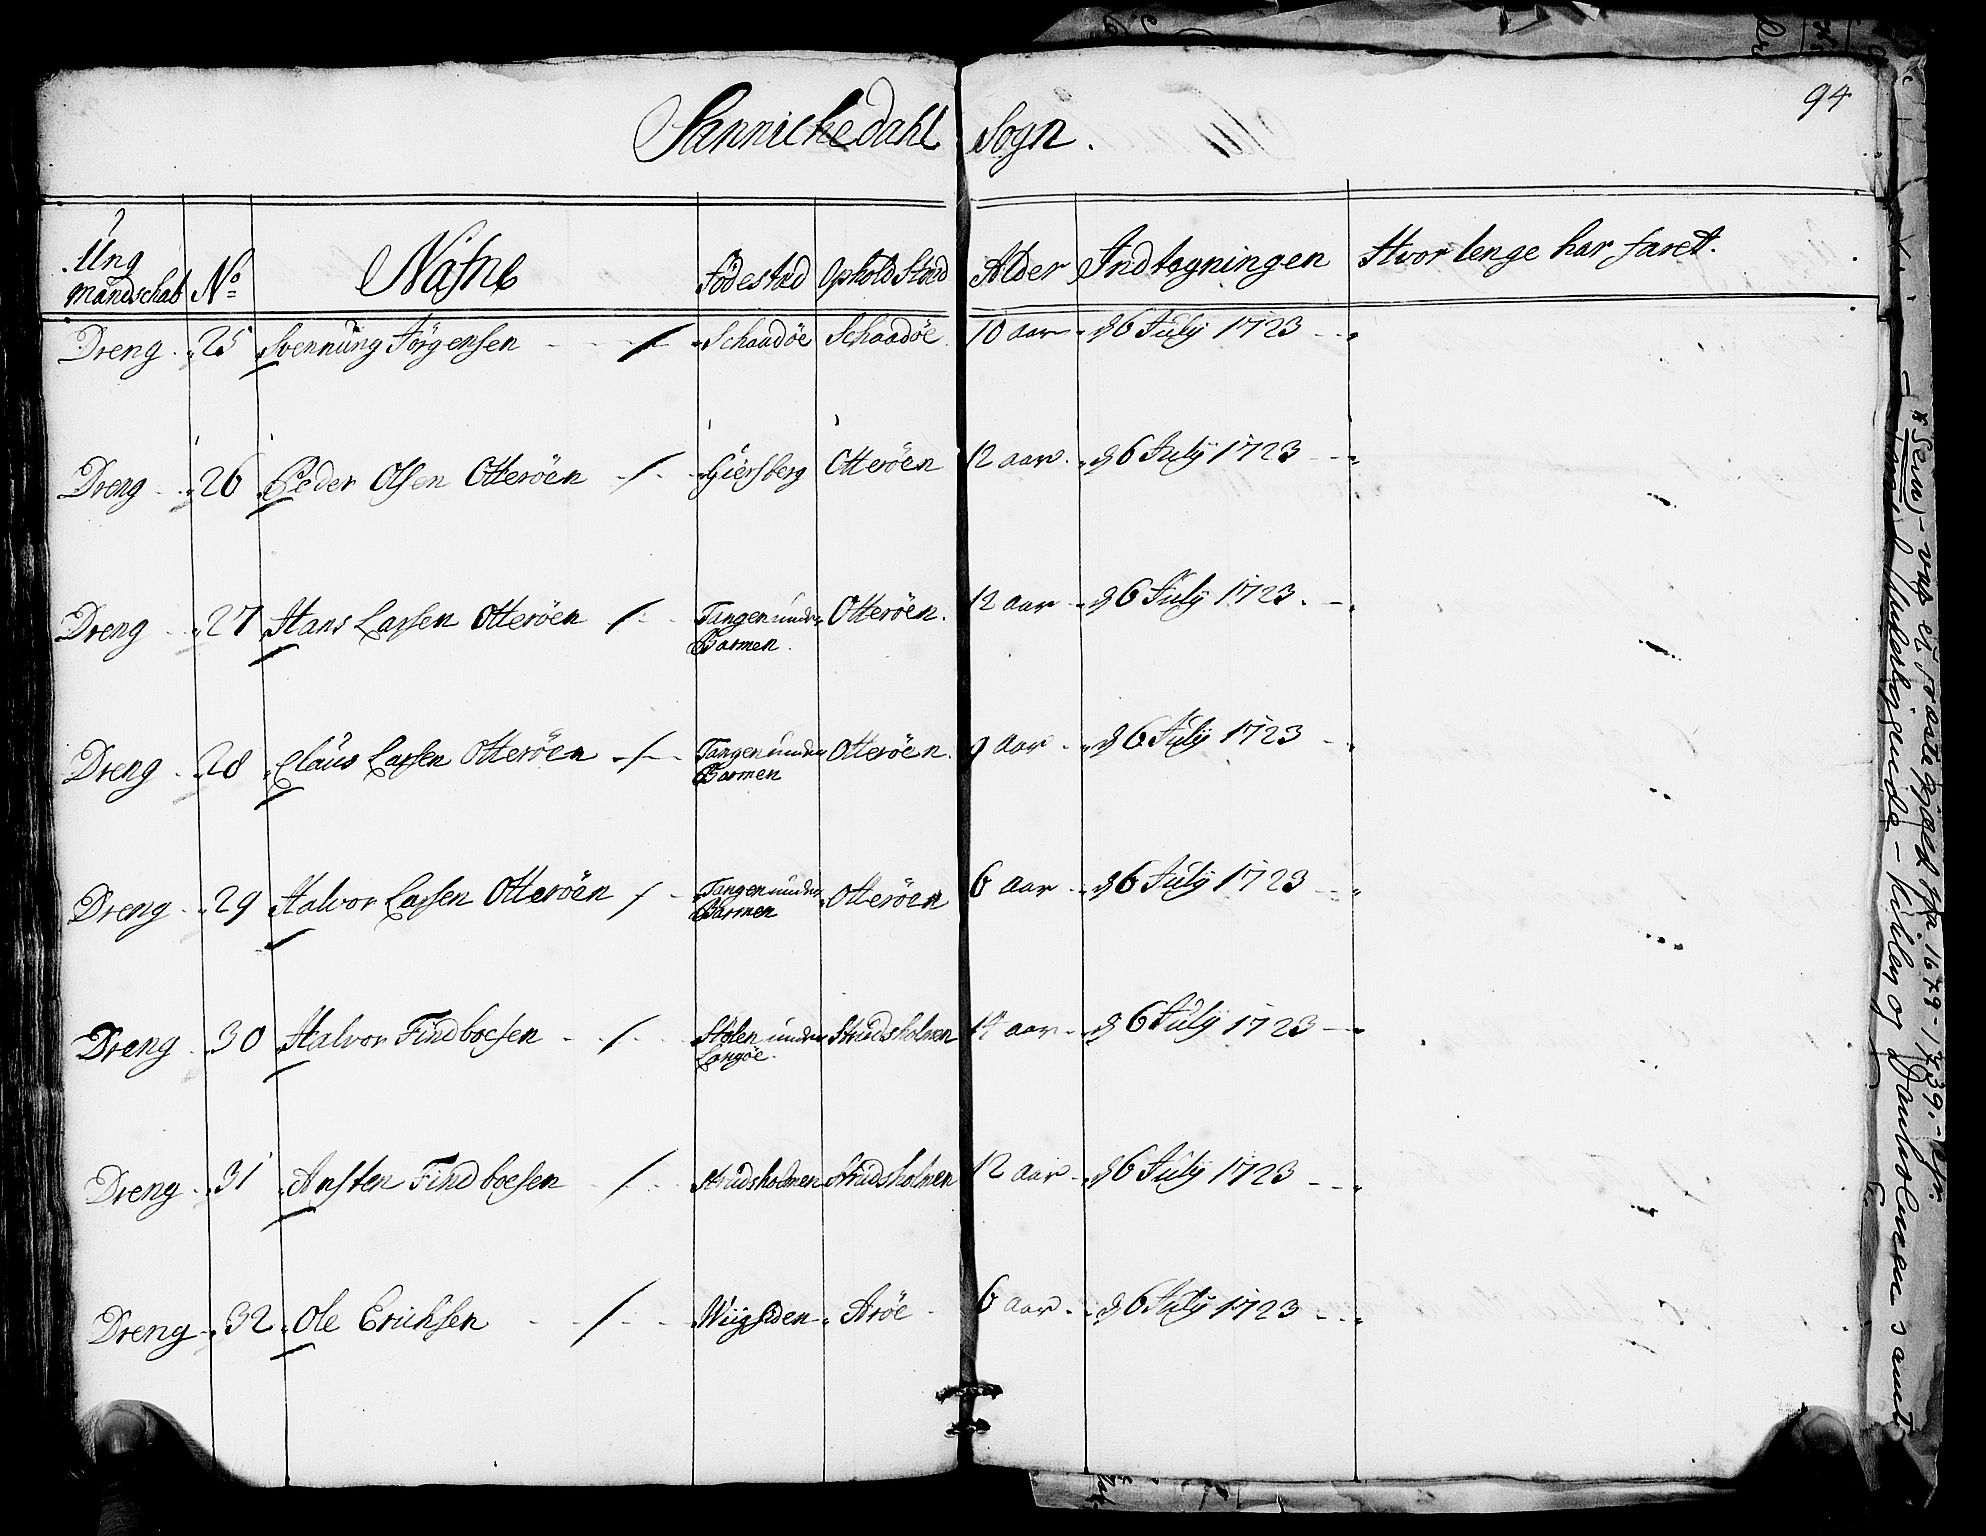 94
Sannichedahl Sogn.
Ung mandschab No Nafne Födestad Ophold Stæd Alder Indtegningen Hvor lenge har faret.
Dreng 25 Svennüng Jörgensen Schaadöe Schaadöe 10 aar d 6 Julÿ 1723
Dreng 26 Peder Olsen Otteröen Giersberg Otteröen 12 aar d 6 Julÿ 1723
Dreng 27 Hans Larsen Otteröen Tangen under Barmen Otteröen. 12 aar d 6 Julÿ 1723.
Dreng 28 Claus Larsen Otteröen Tangen under Barmen Otteröen. 9 aar d 6 Julÿ 1723
Dreng 29 Halvor Larsen Otteröen Tangen under Barmen Otteröen 6 aar d 6 Julÿ 1723
Dreng 30 Halvor Findboesen Stölen under Langöe. Strudsholmen 14 aar d 6 Julÿ 1723
Dreng 31 Ansten Findboesen Strudsholmen Strudsholmen 12 aar d 6 Julÿ 1723
Dreng 32 Ole Erichsen Wiigsiden Aröe 6 aar d 6 Julÿ 1723